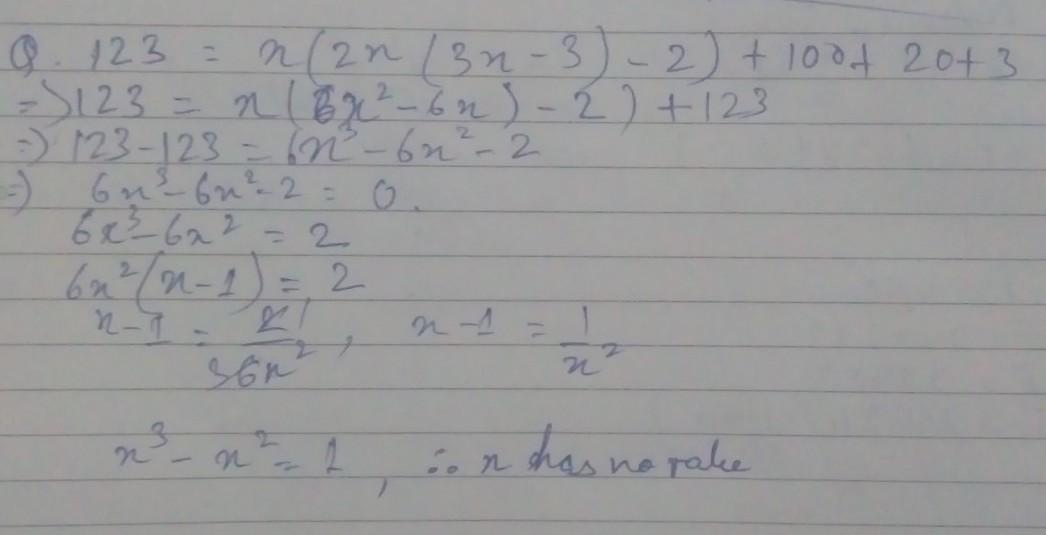 Q. 123 = x(2x(3x-3)-2)+100+20+3
=> 123 = x(6x²-6x)-2)+123
=> 123-123 = 6x³-6x²-2
=> 6x³-6x²-2 = 0.
6x³-6x² = 2
6x²(x-1) = 2
x-1 = 21/36x², x-1 = 1/x²
x³-x²=1, ∴ x has no value